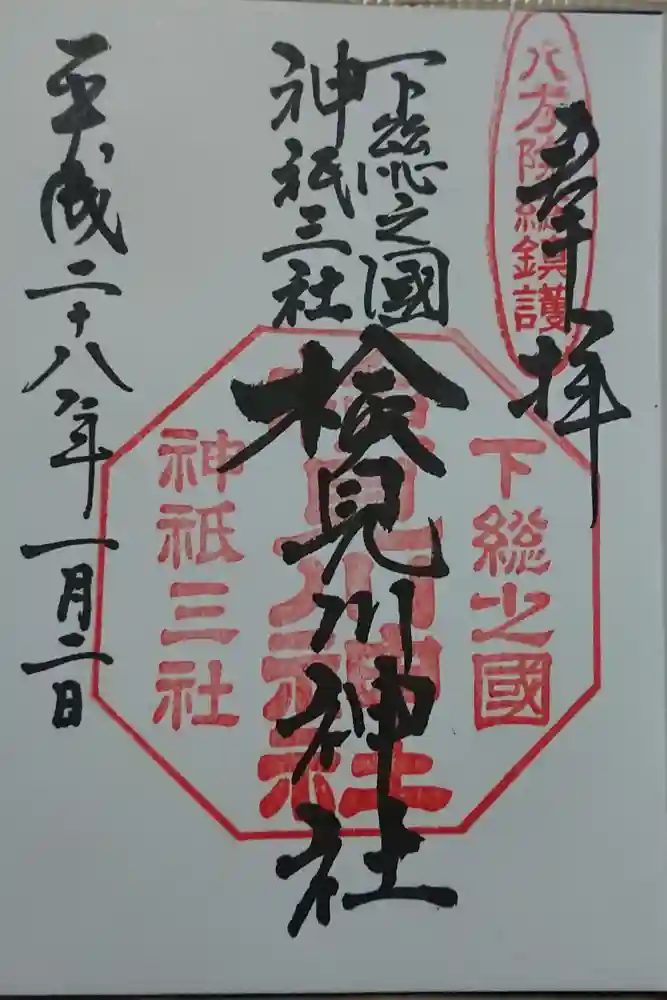 奉拝
八方除総鎮護
下総之國
神祇三社
検見川神社
下総之國
検見川神社
神祇三社
平成二十八年一月二日